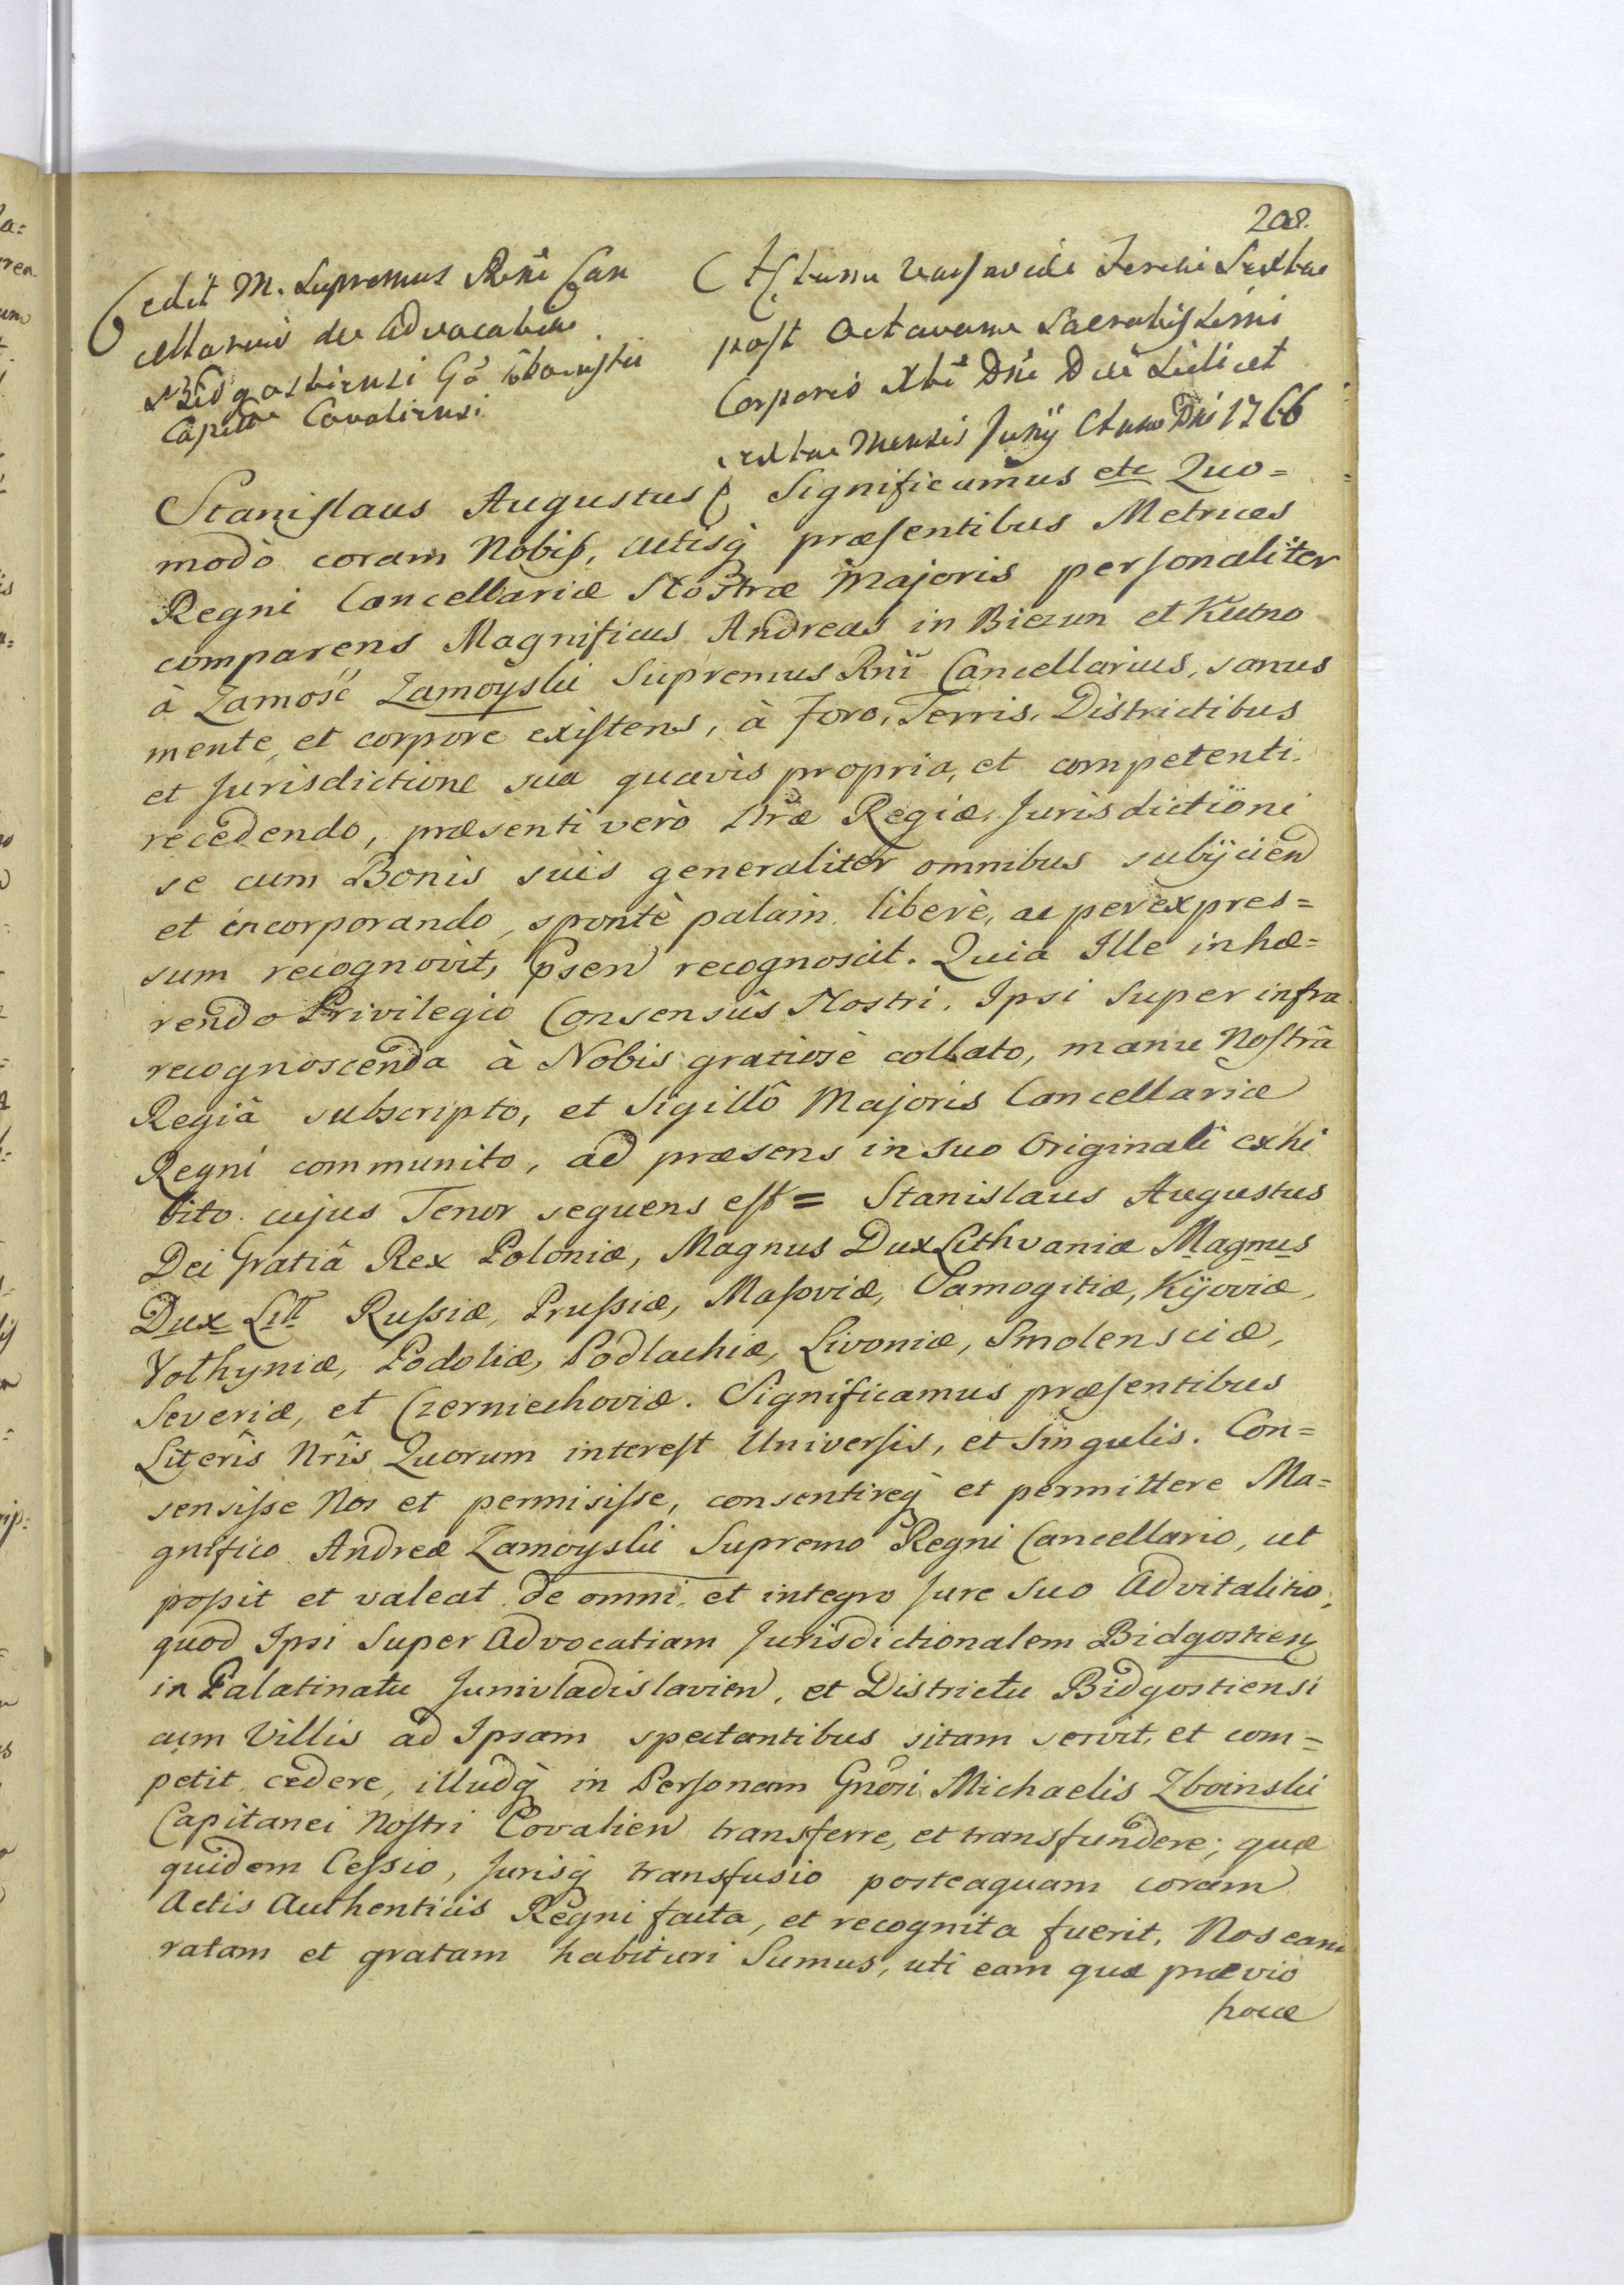 208.
Cedit M. Supremus Rñi Can
cellarius de Advocatia
Bidgostiensi Gō Zboinski
Capitō Covaliensi
Actum Varsaviæ Feria Sexta
post Octavam Sacratissimi
Corporis Xti Dñi Die Scilicet
sexta Mensis Junÿ Anno Dñi 1766
Stanislaus Augustus Significamus etc Quo=
modò coram Nobis, actisq̃ præsentibus Metrices
Regni Cancellariæ Nostræ Majoris personaliter
comparens Magnificus Andreas in Biezun et Kutno
à Zamość Zamoyski Supremus Rñi Cancellarius, sanus
mente et corpore existens, à Foro, Terris, Districtibus
et Jurisdictione sua quavis propria, et competenti
recedendo, præsenti verò Nræ Regiæ, Jurisdictioni
se cum Bonis suis generaliter omnibus subÿcien
et incorporando, spontè palam liberè, ac per expres=
sum recognovit, Psen recognoscit. Quia Ille inhæ=
rendo Privilegio Consensûs Nostri, Ipsi super infra
recognoscenda à Nobis gratiosè collato, manu Nostrâ
Regiâ subscripto, et Sigillô Majoris Cancellariæ
Regni communito, ad præsens in suo Originali exhi
bito cujus Tenor sequens est = Stanislaus Augustus
Dei Gratiâ Rex Poloniæ, Magnus Dux Lithvaniæ Magnus
Dux Litt Russiæ, Prussiæ, Masoviæ, Samogitiæ, Kÿoviæ,
Volhyniæ, Podoliæ, Podlachiæ, Livoniæ, Smolensciæ,
Severiæ, et Czerniechoviæ. Significamus præsentibus
Literis Nrîs Quorum interest Universis, et Singulis. Con=
sensisse Nos et permisisse, consentireq̃ et permittere Ma=
gnifico Andreæ Zamoyski Supremo Regni Cancellario, ut
possit et valeat de omni et integro Jure suo Advitalitio,
quod Ipsi super Advocatiam Jurisdictionalem Bidgostien
in Palatinatu Junivladislavien, et Districtu Bidgostiensi
cum Villis ad Ipsam spectantibus sitam servit, et com=
petit cedere, illudq̃ in Personam Gnōri Michaelis Zboinski
Capitanei Nostri Covalien transferre, et transfundere; quæ
quidem Cessio, Jurisq̃ transfusio posteaquam coram
Actis Authenticis Regni facta, et recognita fuerit, Nos eam
ratam et gratam habituri Sumus, uti eam quæ prævio
hocce